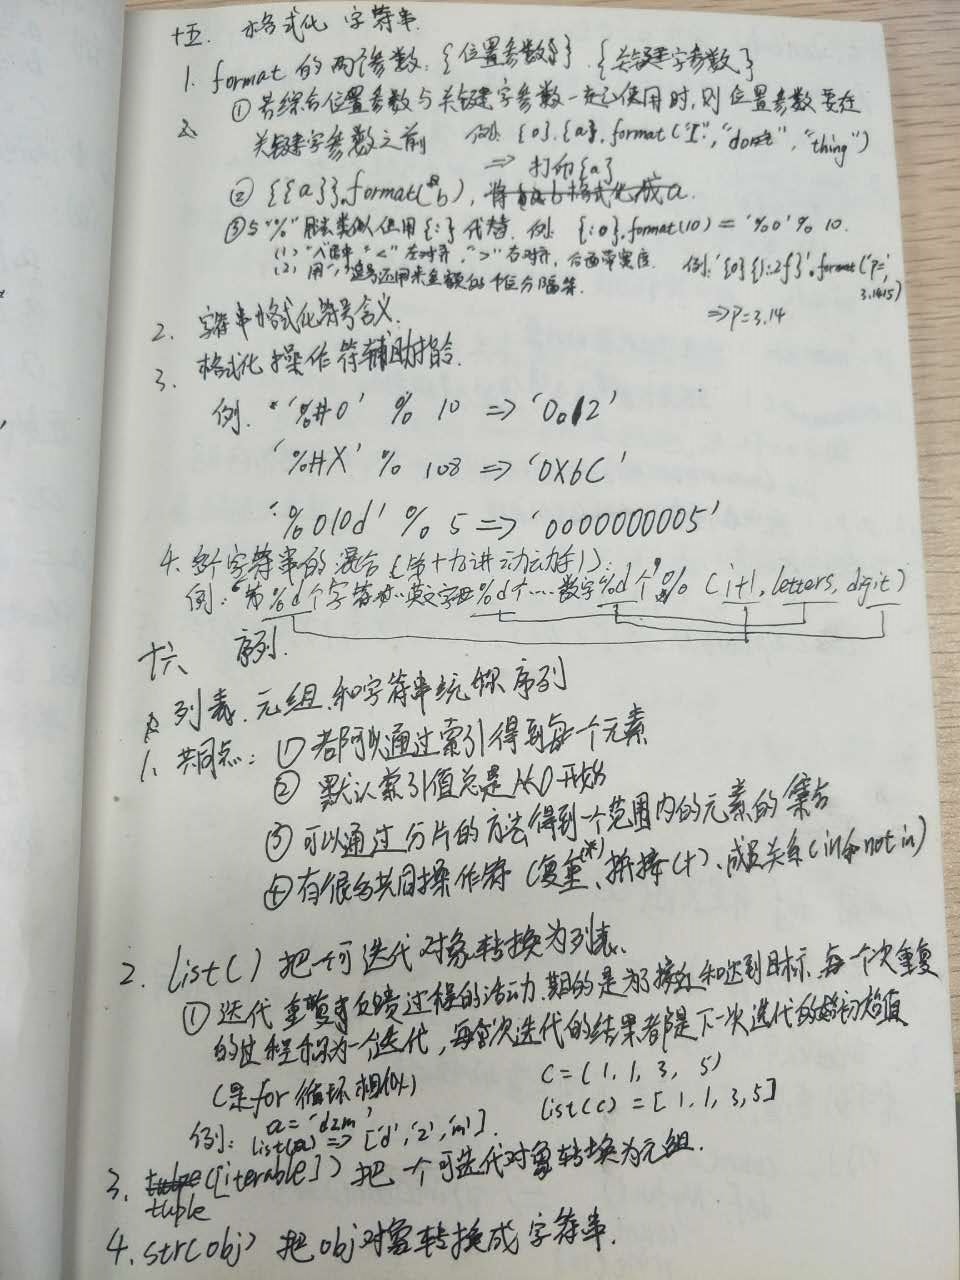 十五. 格式化字符串.
1. format 的两个参数. {位置参数} . {关键字参数}
① 若综合位置参数与关键字参数一起使用时, 则位置参数要在
关键字参数之前 例. {0}.{a}.format("I", "dont", "thing")
⇒ 打印{a}
② {{a}}.format("b), 格式化成a.
③ 与"%"用法类似 但用{:}代替. 例. {:0}.format(10) = '%0' % 10.
"<" 左对齐, ">" 右对齐, 后面带宽度. 例: '{0}{1:2f}'.format('P=',
3.1415)
(2) 用"," 还用来金额的千位分隔符.
⇒P=3.14
2. 字符串格式化符号含义.
3. 格式化操作符辅助指令.
例. '%#0' % 10 ⇒ '0012'
'%#X' % 108 ⇒ '0X6C'
'%010d' % 5 ⇒ '0000000005'
4. 多个字符串的混合 (第十九讲动动手1):
例: "第%d个字符串..英文字母%d个....数字%d个"% (i+1, letters, digit)
十六 序列.
列表. 元组 和字符串统称序列
1. 共同点: ① 都可以通过索引得到每个元素
② 默认索引值总是从0开始
③ 可以通过分片的方法得到一个范围内的元素的集合
④ 有很多共同操作符 (重复(*)、拼接(+)、成员关系(in和not in)
2. list() 把一个可迭代对象转换为列表.
① 迭代 重复反馈过程的活动. 目的是为了接近和达到目标. 每一次重复
的过程称为一个迭代, 每一次迭代的结果都是下一次迭代的初始值
(是for循环相似) C = (1, 1, 3, 5)
list(c) = [1, 1, 3, 5]
a = 'dzm'
例: list(a) ⇒ ['d', 'z', 'm'].
3. tuple([iterable]) 把一个可迭代对象转换为元组.
4. str(obj) 把obj对象转换成字符串.